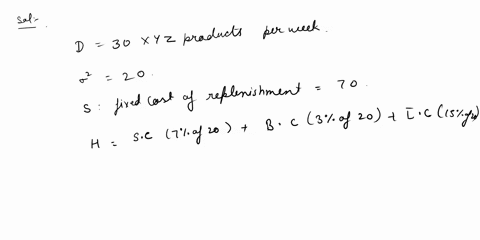 Sol:-
D = 30 XYZ products per week.
σ² = 20.
S : fixed cost of replenishment = 70.
H = S.C (7% of 20) + B.C (3% of 20) + I.C (15% of 20)